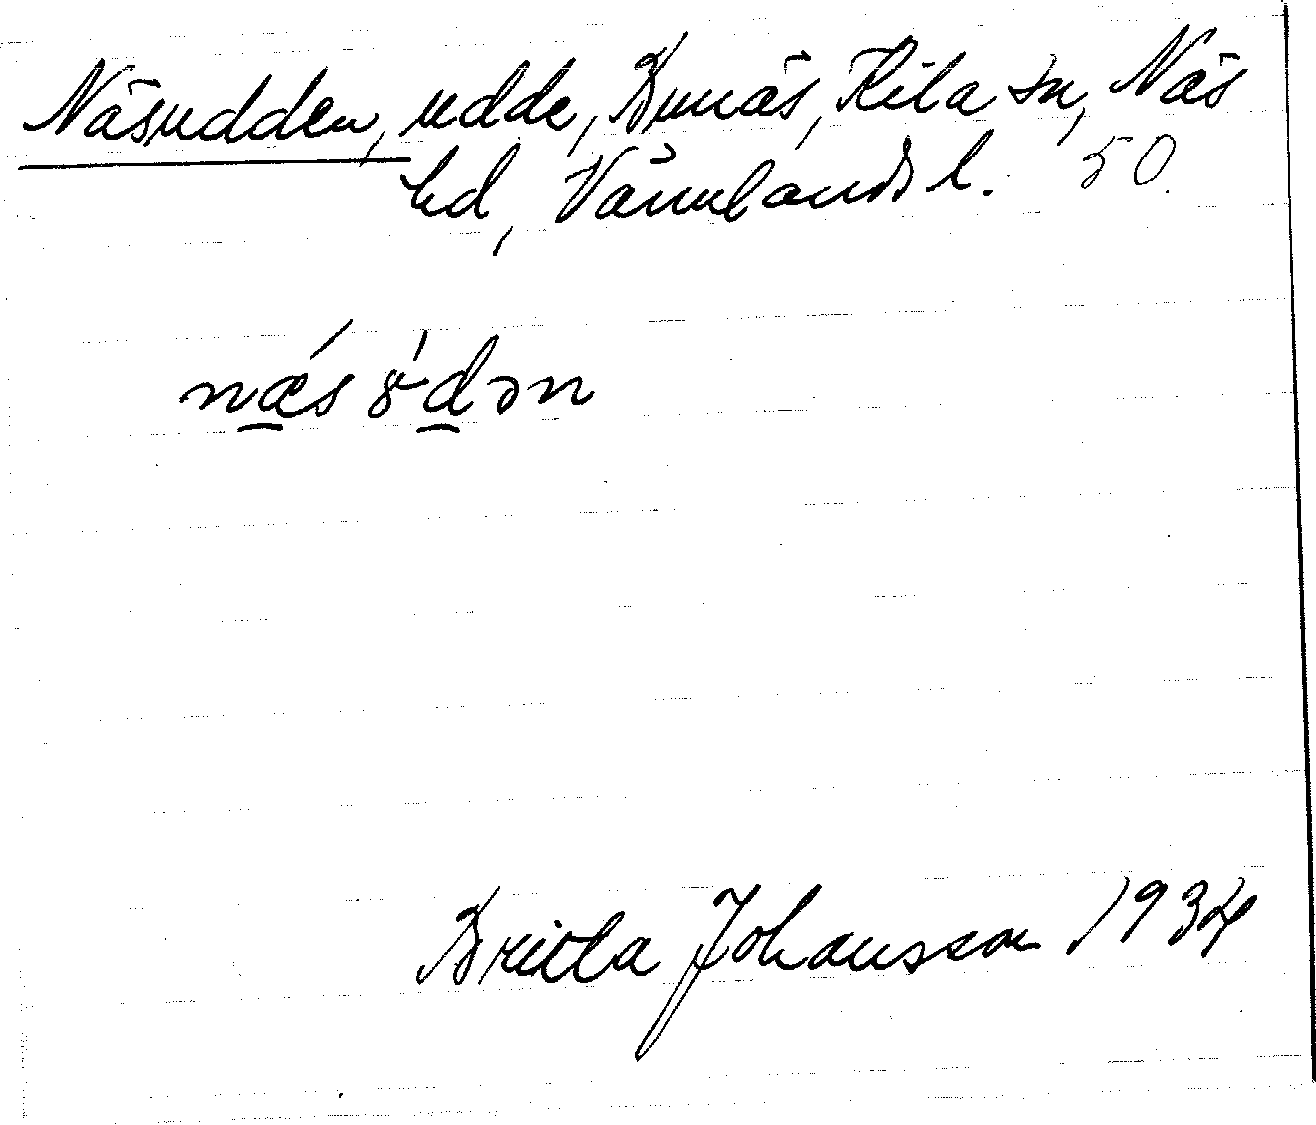 Näsudden, udde, Bunäs, Kila sn, Näs
hd, Värmlands l. 50.
næ̲´s ȣ̍d̲ən
Britta Johansson 1934